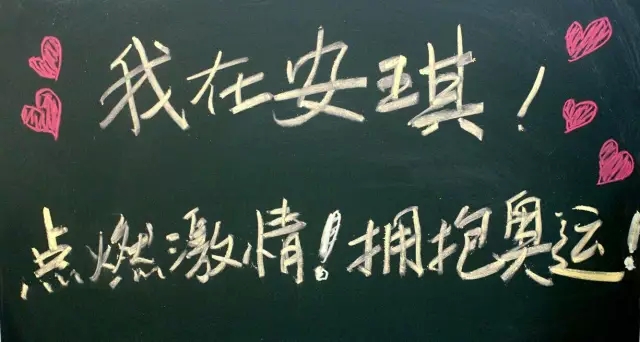 我在安琪!
点燃激情!拥抱奥运!